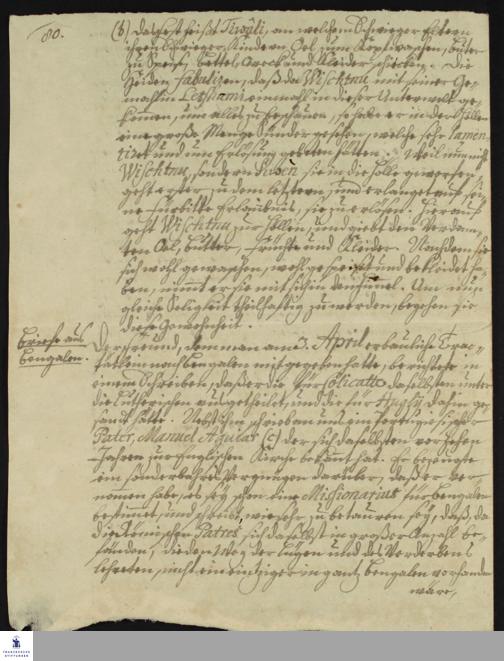 80.
(b) Das Fest heißt Tiwâli, an welchem Schwieger Eltern
ihren Schwieger Kindern Oel zum Kopfwaschen, butter
zu Speise, bettel Areck und Kleider schicken. Die
Heiden fabuliren, daß da Wischtnu mit seiner Ge-
mahlin Letschimi einmahl in dieser Unterwelt ge-
kommen, um alles zu beschauen, so habe er in der Höllen
eine große Menge Sünder gesehen, welche sehr lamen-
tirt und um Erlösung gebeten hätten. Weil nun nicht
Wischtnu, sondern sie in die Hölle geworfen,
geht er zu dem letztern, und erlanget auf sei-
ne Fürbitte Erlaubnis, sie zu erlösen. Hierauf
geht Wischtnu zur Höllen, und giebt den Verdam-
ten Oel, butter, Früchte und Kleider. Nachdem sie
sich wohl gewaschen, wohl gespeist und bekleidet ha-
ben, nimmt er sie mit sich in den Himmel. Um nun
gleiche Seligkeit theilhaftig zu werden, begehen sie
diese Gewohnheit.
briefe aus
bengalen.
Der freund, dem man am 3. April erbauliche Trac-
tätlein nach bengalen mitgegeben hatte, berichtete in
einem Schreiben, daß er die für Colicatto daselbsten unter
die Lutherischen ausgetheilet und die für Hugly dahin ge-
sandt hätte. Nebst ihm schrieb an uns ein portugiesischer
Pater, Manuel Agular (c) der sich daselbsten vor zehen
Jahren zur Englischen Kirche bekant hat. Er bezeugte
ein sonderbahres Vergnügen darüber, daß er ver-
nomen habe, es sey schon ein Missionarius für bengalen
bestimt, und schreibt, wie sehr zu betauren sey, daß, da
die Römischen Patres sich daselbst in großer Anzahl be-
fänden, die den Weg der Lügen und des Verderbens
lehreten, nicht ein einziger in gantz bengalen vorhanden
wäre,
FRANCKESCHE
STIFTUNGEN